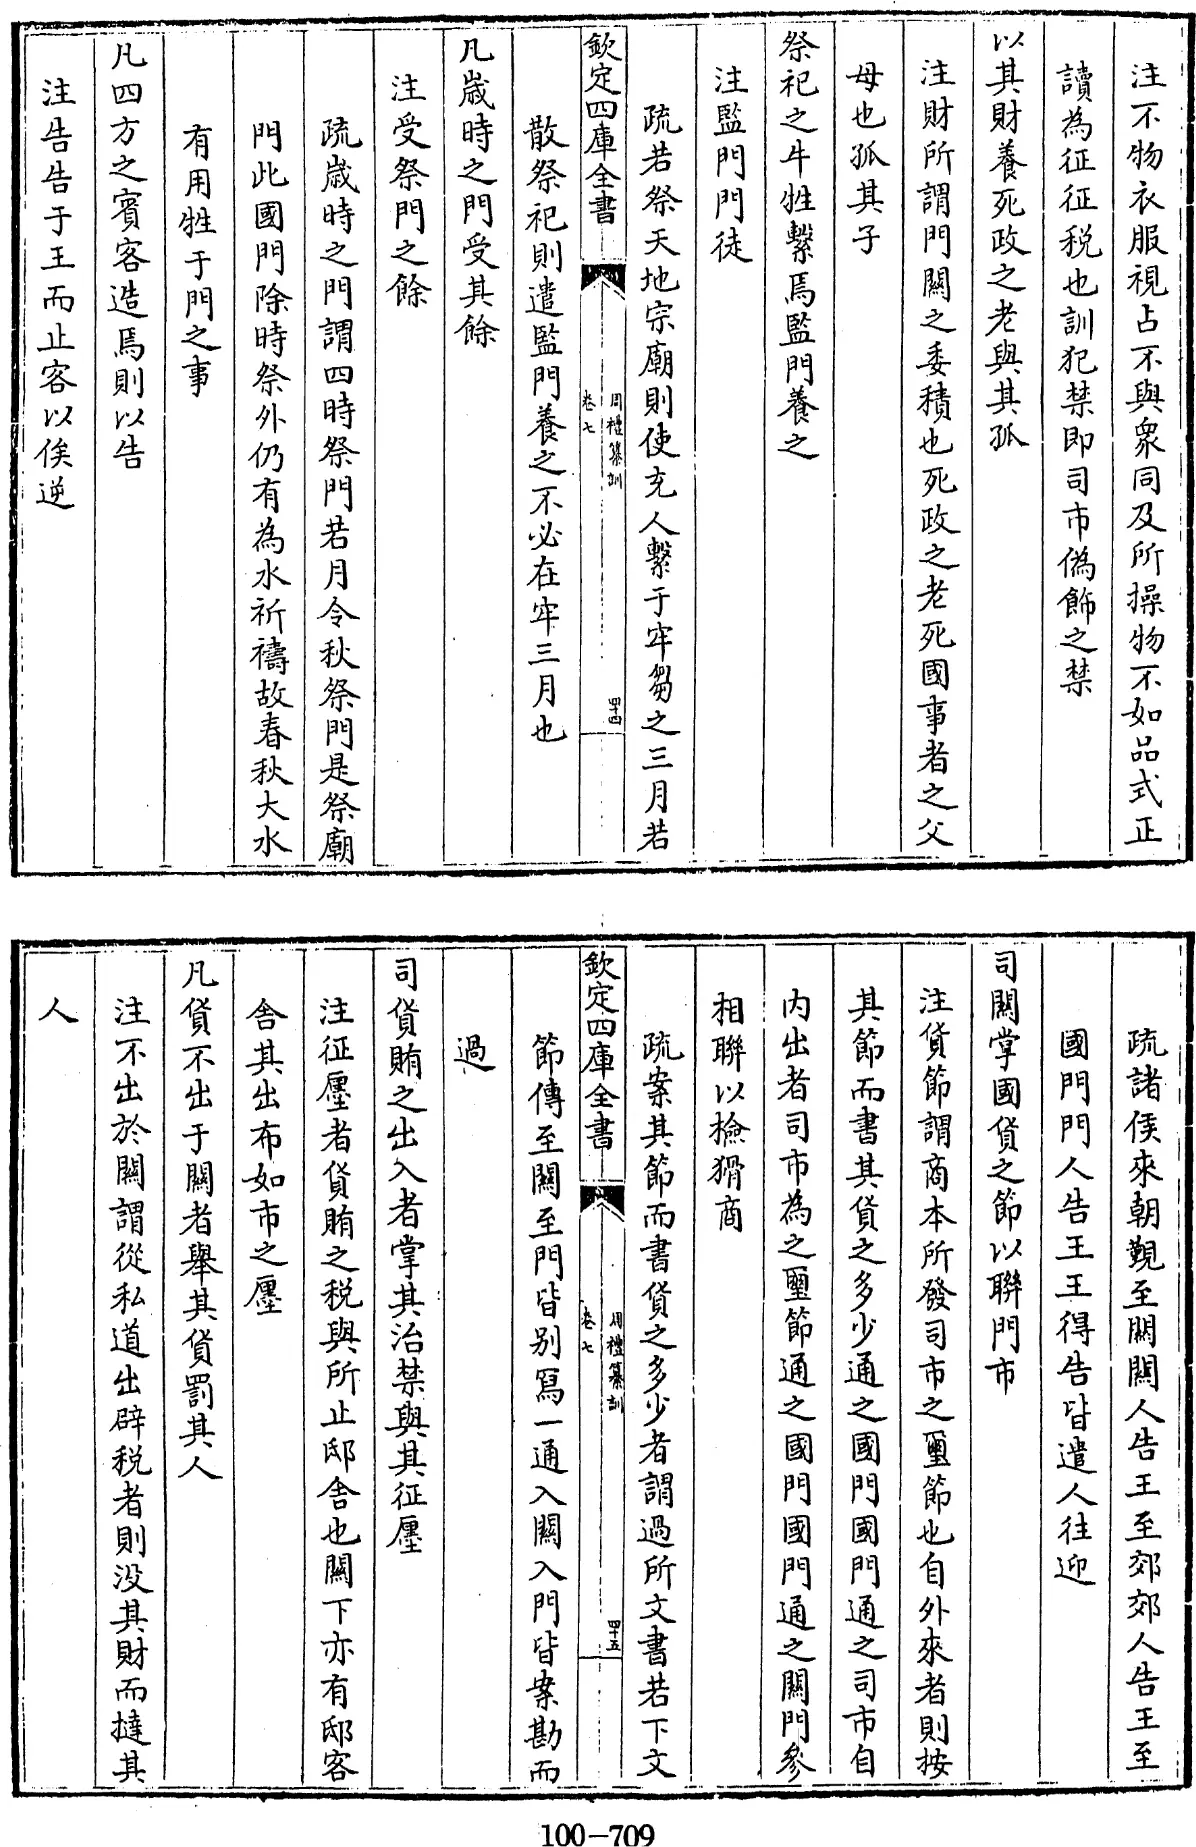 注不物衣服視占不與衆同及所操物不如品式正
讀為征征税也訓犯禁即司市偽飾之禁
以其財養死政之老與其孤
注財所謂門關之委積也死政之老死國事者之父
母也孤其子
祭祀之牛牲繫焉監門養之
注監門門徒
疏若祭天地宗廟則使充人繫于牢芻之三月若
欽定四庫全書
周禮纂訓
卷七
四十四
散祭祀則遣監門養之不必在牢三月也
凡歲時之門受其餘
注受祭門之餘
疏歲時之門謂四時祭門若月令秋祭門是祭廟
門此國門除時祭外仍有為水祈禱故春秋大水
有用牲于門之事
凡四方之賓客造焉則以告
注告告于王而止客以俟逆
疏諸侯來朝覲至關關人告王至郊郊人告王至
國門門人告王王得告皆遣人往迎
司關掌國貨之節以聯門市
注貨節謂商本所發司市之璽節也自外來者則按
其節而書其貨之多少通之國門國門通之司市自
内出者司市為之璽節通之國門國門通之關門參
相聯以檢猾商
疏案其節而書貨之多少者謂過所文書若下文
欽定四庫全書
周禮纂訓
卷七
四十五
節傳至關至門皆别寫一通入關入門皆案勘而
過
司貨賄之出入者掌其治禁與其征廛
注征廛者貨賄之税與所止邸舍也關下亦有邸客
舍其出布如市之廛
凡貨不出于關者舉其貨罰其人
注不出於關謂從私道出辟税者則没其財而撻其
人
100-709